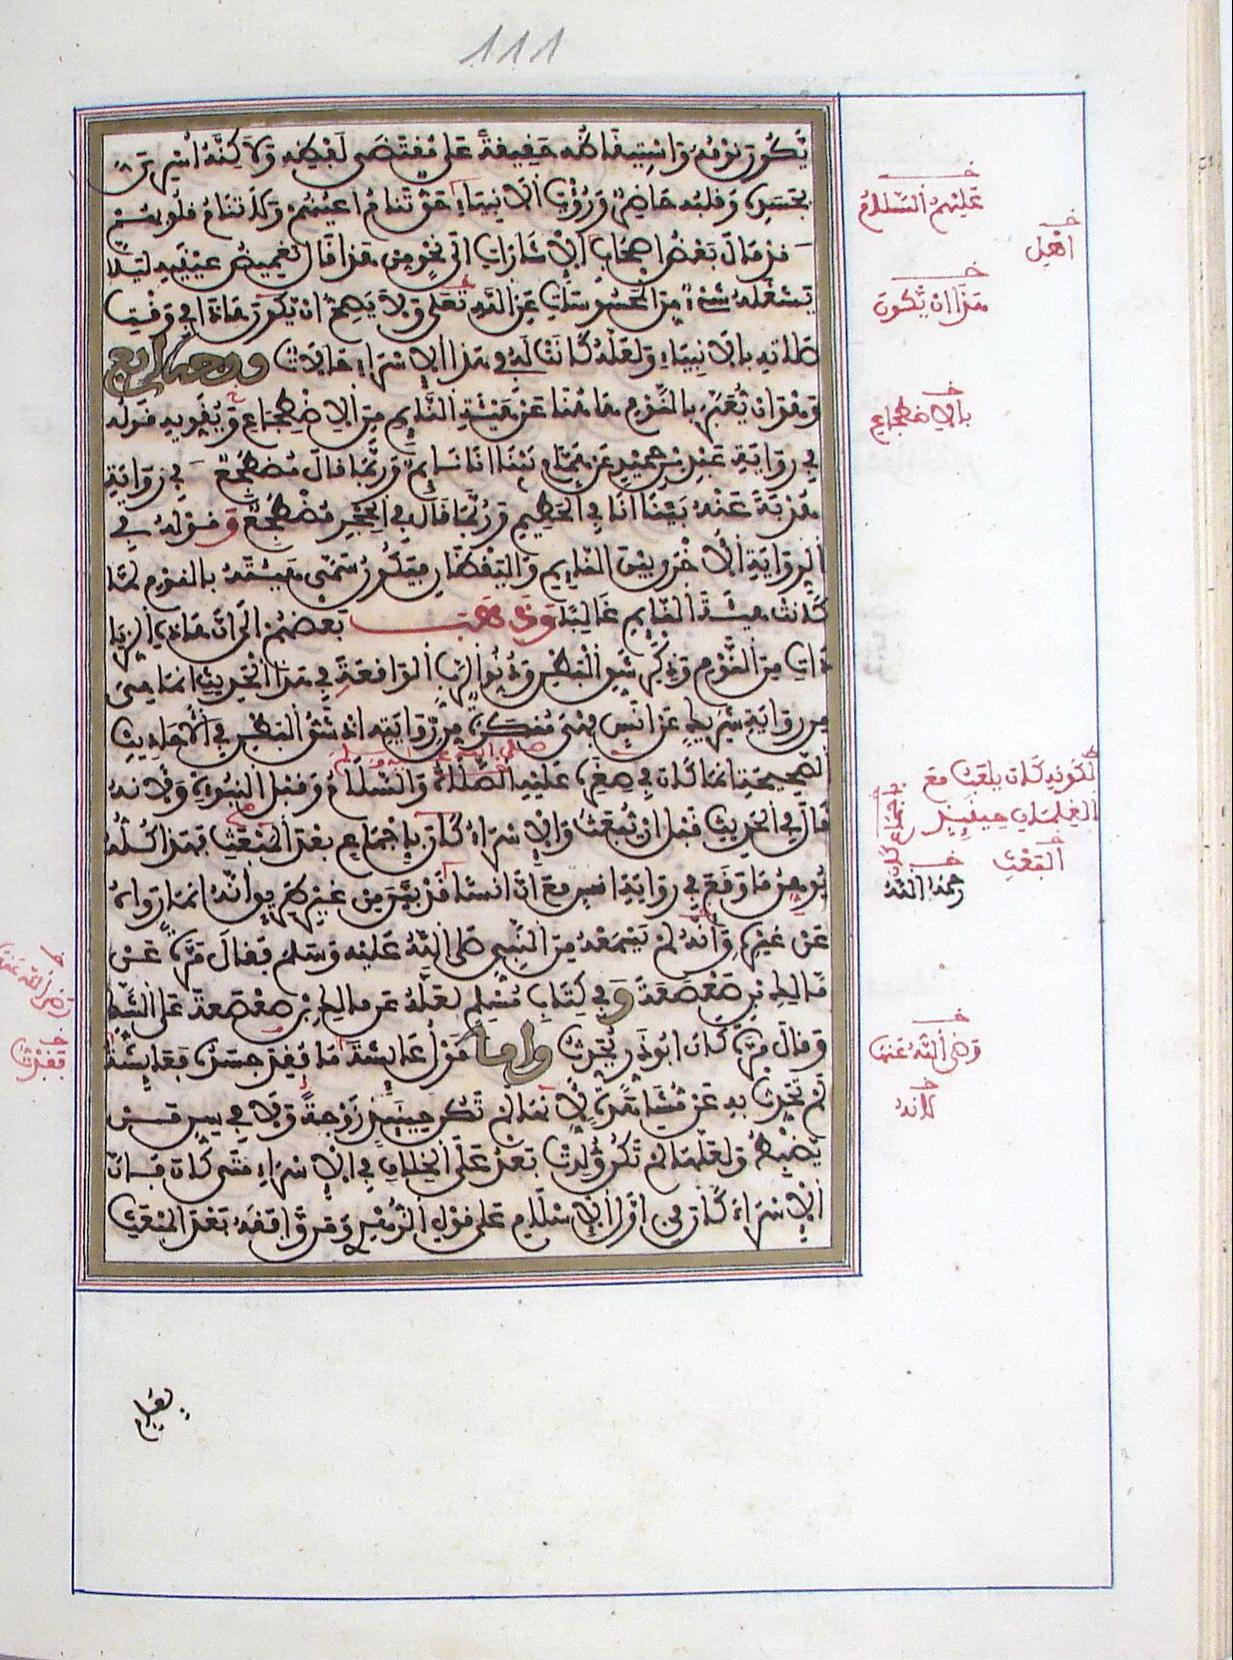 111
يكون نومه واستيقاظه حقيقة على مقتضى لفظه ولاكنه اسري
بجسده وقلبه حاضر ورؤيا الانبياء حق تنام اعينهم ولا تنام قلوبهم
قد مال بعض اصحاب الاشارات الى نحو من هذا قال تغميض عينيه ليلا
يشغله شيء من المحسوسات عن الله تعلى ولا يصح ان يكون هاذا في وقت
صلاته بالانبياء ولعله كانت له في هذا الاسراء حالات ووجه رابع
وهو ان نعبر بالنوم هاهنا عن هيئة النايم من الاضطجاع ويقويه قوله
في رواية عبد بن حميد عن همام بينا انا نايم وربما قال مضطجع في رواية
هدبة عنه بينا انا في الحطيم وربما قال في الحجر مضطجع وقوله في
الرواية الاخرى بين النايم واليقظان فيكون سمى هيئته بالنوم لما
كانت هيئة النايم غالبا وذهب بعضهم الى ان هاذه الزيادات
من النوم وذكر شق البطن ودنو الرب الواقعة في هذا الحديث انما هي
من رواية شريك عن انس فهي منكرة من روايته اذ شق البطن في الاحاديث
الصحيحة انما كان في صغره عليه الصلاة والسلام وقبل النبوءة ولانه
قال في الحديث قبل ان يبعث والاسراء كان باجماع بعد المبعث فهذا كله
يوهن ما وقع في رواية انس مع ان انسا قد بين من غير طريق انه انما رواه
عن غيره وانه لم يسمعه من النبي صلى الله عليه وسلم فقال مرة عن
مالك بن صعصعة وفي كتاب مسلم لعله عن مالك بن صعصعة على الشك
وقال مرة كان ابو ذر يحدث واما قول عايشة ما فقد جسده فعايشة
لم تحدث به عن مشاهدة لانها لم تكن حينئذ زوجة ولا في سن من
يضبط ولعلها لم تكن ولدت بعد على الخلاف في الاسراء متى كان فان
الاسراء كان في اول الاسلام على قول الزهري ومن وافقه بعد المبعث
عليهم السلام
اهل
هذا ان تكون
بالاضطجاع
لكونه كان يلعب مع
الغلمان حينئذ
البعث
رحمه الله
رضي الله عنها
لانه
رضي الله عنه